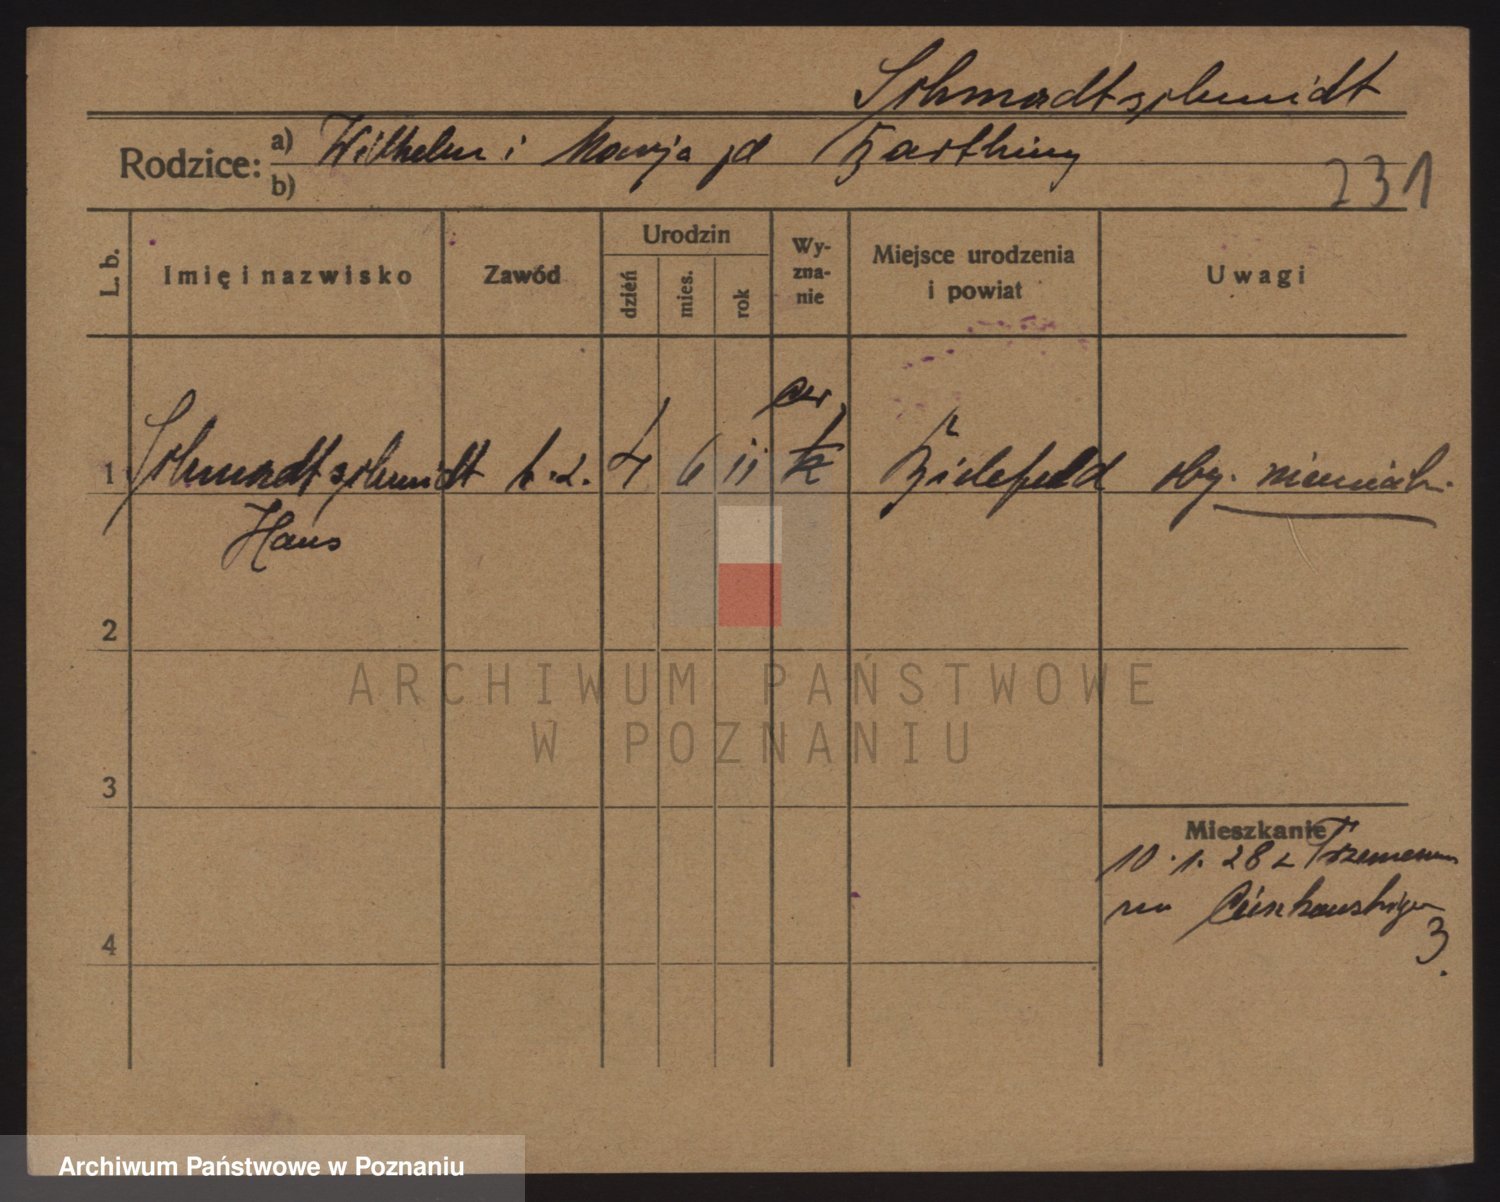 Schmadtschmidt
Rodzice: a) Wilhelm i Marja zd Barthing
b)
231
L. b. Imię i nazwisko Zawód Urodzin dzień mies. rok Wy-zna-nie Miejsce urodzenia i powiat Uwagi
ew.
1 Schmadtschmidt b.z. 4 6 11 k Bielefeld oby. niemieck.
Hans
2
ARCHIWUM PAŃSTWOWE
W POZNANIU
3
Mieszkanie
10.1.28 z Trzemeszna
na
3.
4
Archiwum Państwowe w Poznaniu